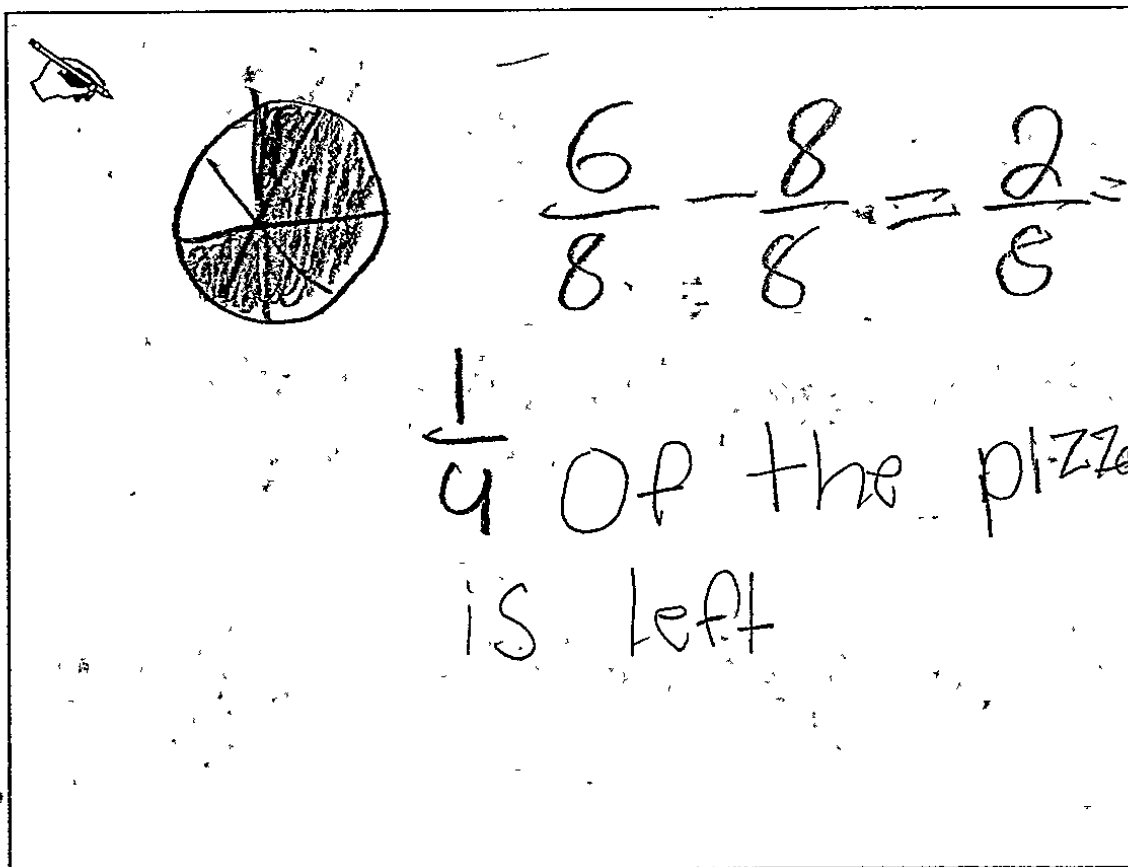 6/8 - 8/8 = 2/8 =
1/4 Of the pizza
is left